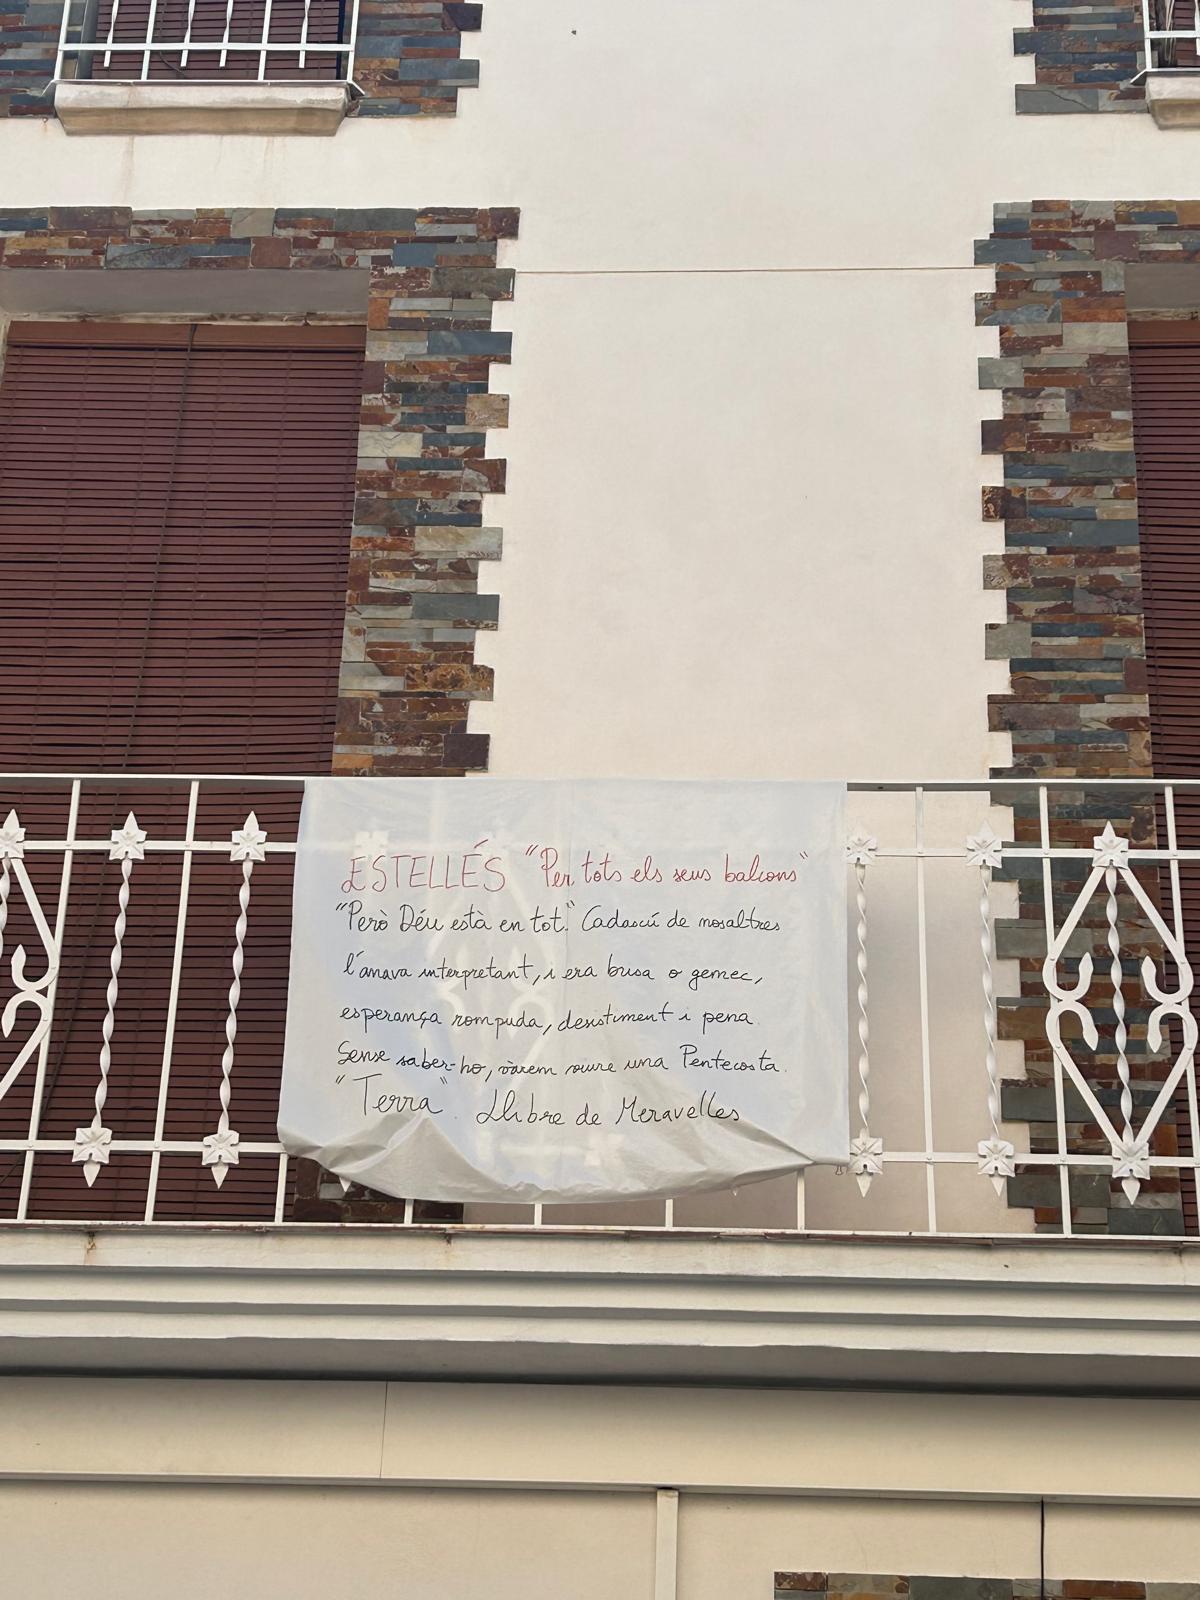 ESTELLÉS "Per tots els seus balcons"
"Però Déu està en tot." Cadascú de nosaltres
l'anava interpretant, i era busa o gemec,
esperança rompuda, desistiment i pena.
Sense saber-ho, vàrem viure una Pentecosta.
"Terra". Llibre de Meravelles